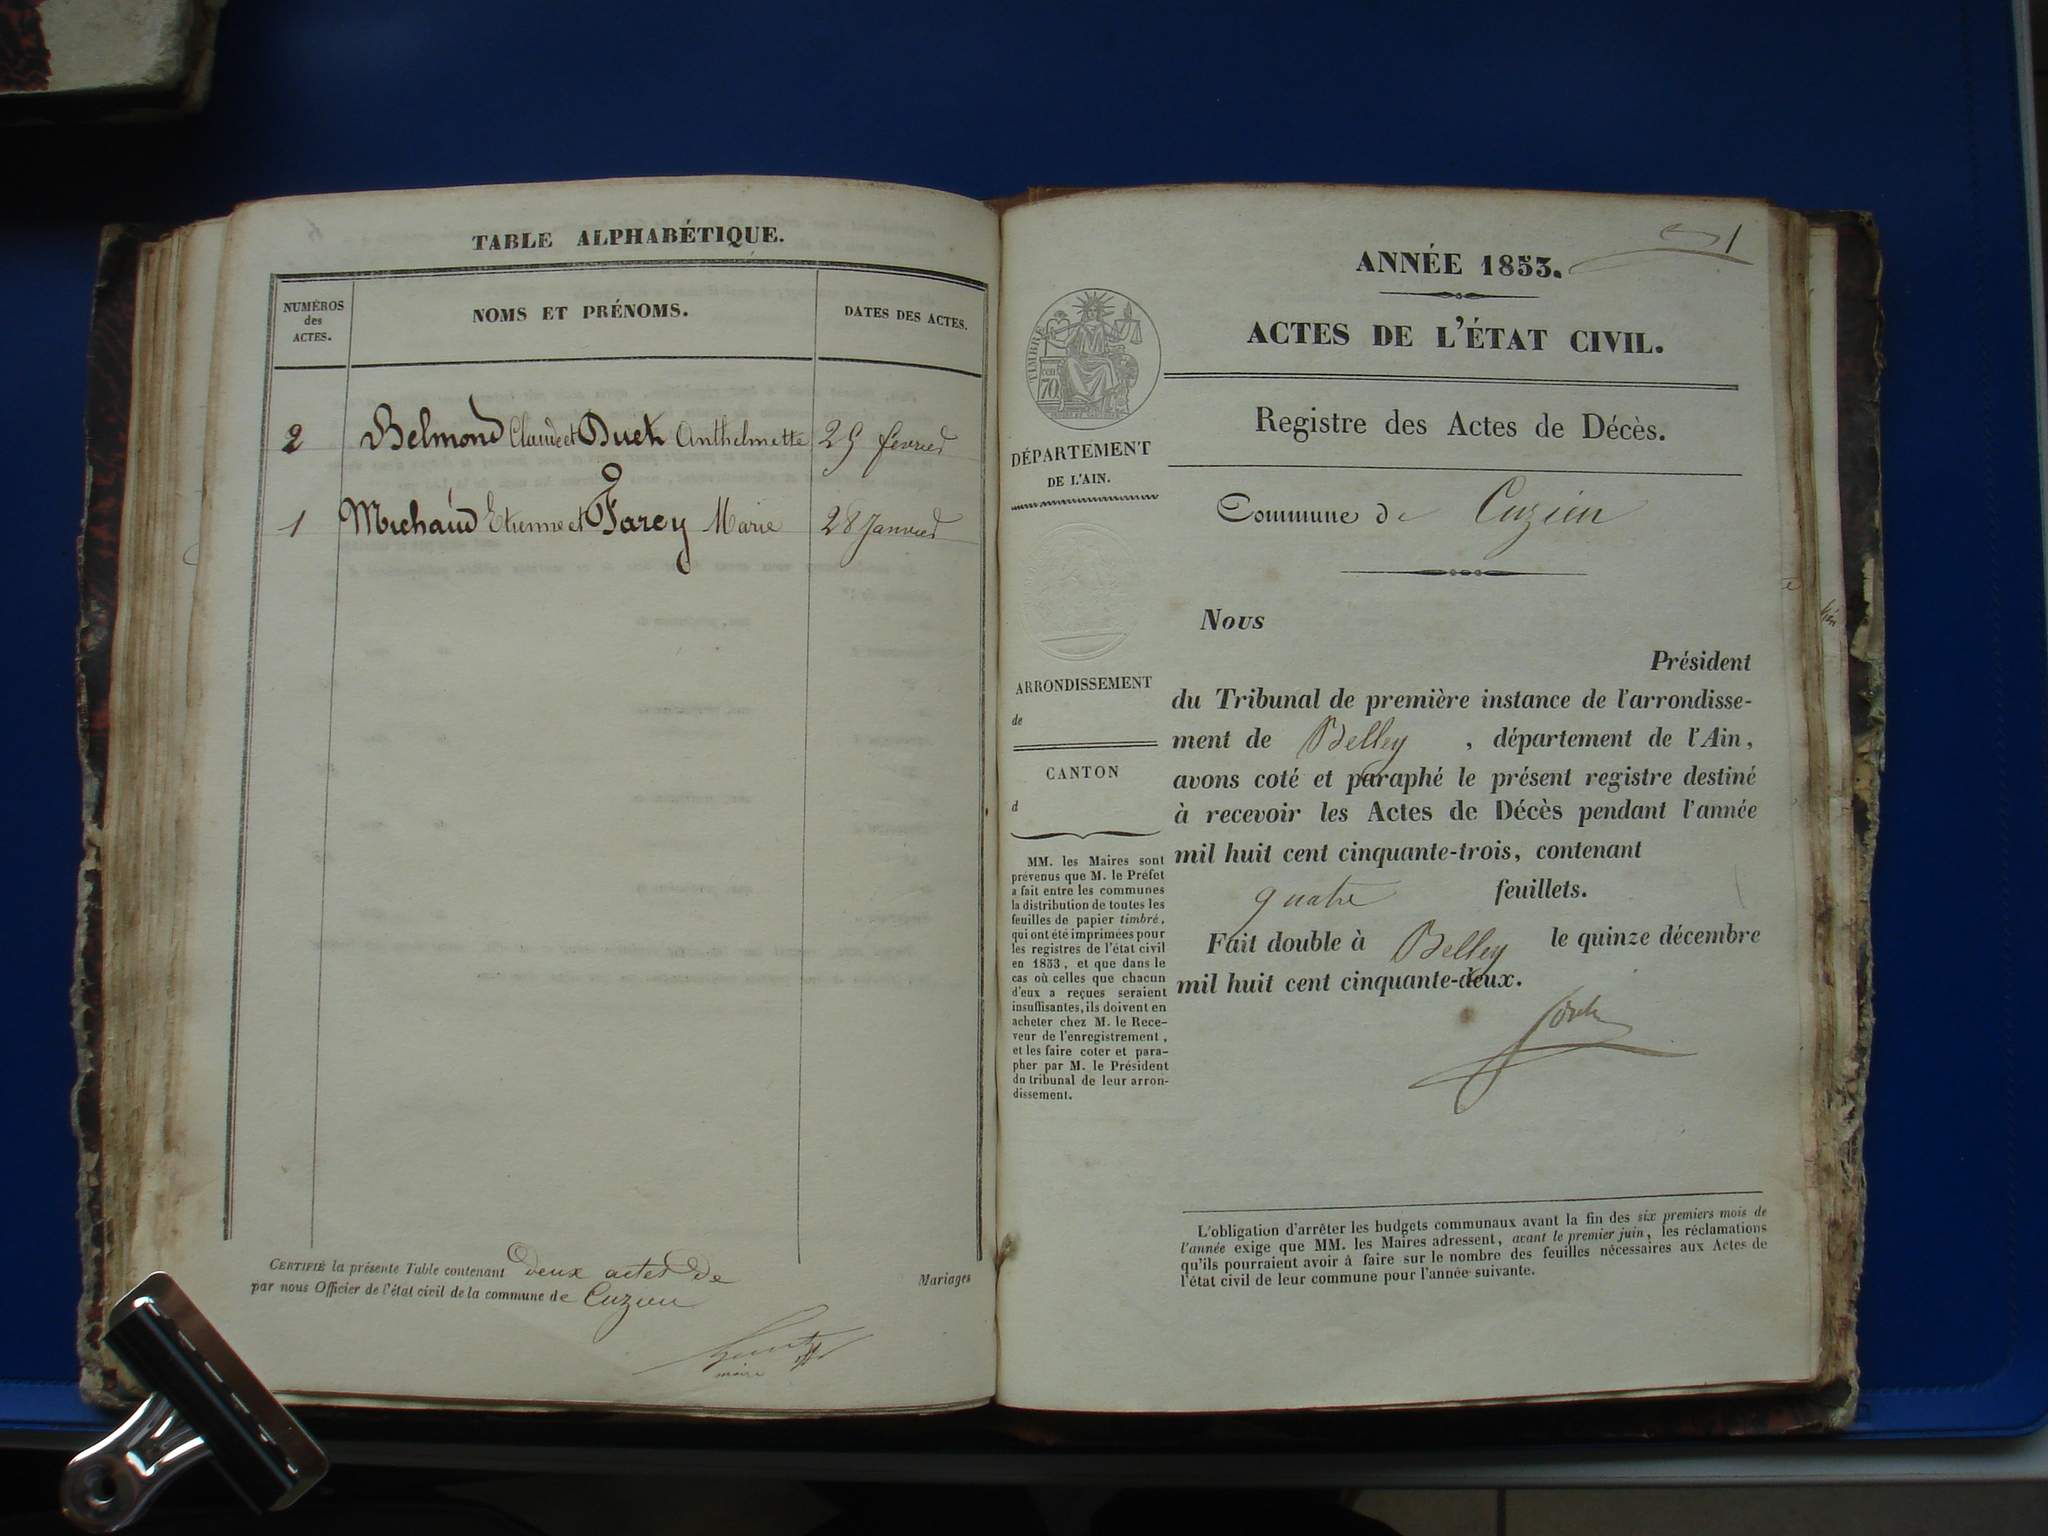 TABLE ALPHABÉTIQUE.
NUMÉROS
des
ACTES.
NOMS ET PRÉNOMS.
DATES DES ACTES.
2 Belmond Claude et Duet Anthelmette 25 février
1 Michaud Etienne et Farcy Marie 28 Janvier
CERTIFIÉ la présente Table contenant deux actes de Mariages
par nous Officier de l'état civil de la commune de Cuzieu
maire
1
ANNÉE 1853.
ACTES DE L'ÉTAT CIVIL.
Registre des Actes de Décès.
TIMBRE
70 cen
DÉPARTEMENT
DE L'AIN.
Commune de Cuzieu
ARRONDISSEMENT
de
CANTON
d
MM. les Maires sont
prévenus que M. le Préfet
a fait entre les communes
la distribution de toutes les
feuilles de papier timbré,
qui ont été imprimées pour
les registres de l'état civil
en 1853, et que dans le
cas où celles que chacun
d'eux a reçues seraient
insuffisantes, ils doivent en
acheter chez M. le Rece-
veur de l'enregistrement,
et les faire coter et para-
pher par M. le Président
du tribunal de leur arron-
dissement.
Nous
Président
du Tribunal de première instance de l'arrondisse-
ment de Belley, département de l'Ain,
avons coté et paraphé le présent registre destiné
à recevoir les Actes de Décès pendant l'année
mil huit cent cinquante-trois, contenant
quatre feuillets.
Fait double à Belley le quinze décembre
mil huit cent cinquante-deux.
L'obligation d'arrêter les budgets communaux avant la fin des six premiers mois de
l'année exige que MM. les Maires adressent, avant le premier juin, les réclamations
qu'ils pourraient avoir à faire sur le nombre des feuilles nécessaires aux Actes de
l'état civil de leur commune pour l'année suivante.